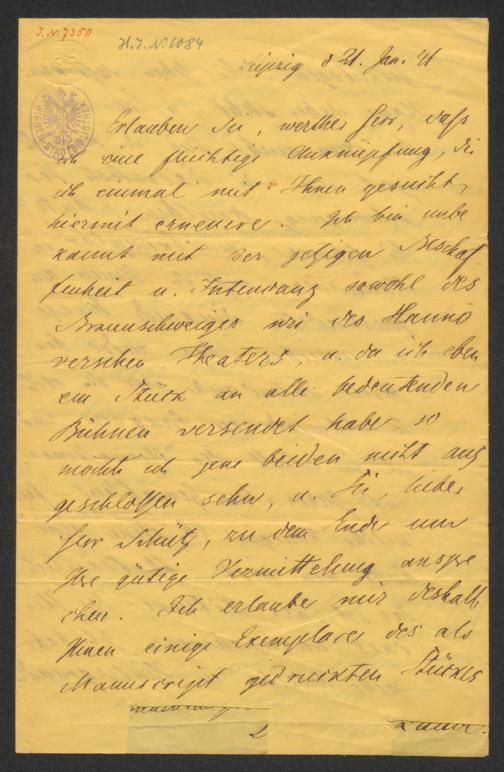 I.N. 7350
H.I.N. 1084
Leipzig d 21. Jan. 41
Erlauben Sie, werther Herr, daß
ich eine flüchtige Anknüpfung, die
ich einmal mit Ihnen gesucht,
hiermit erneuere. Ich bin unbe
kannt mit der jetzigen Beschaf
fenheit u. Intendanz sowohl des
Braunschweiger wie des Hannö
verschen Theaters, u. da ich eben
ein Stück an alle bedeutenden
Bühnen versendet habe so
möchte ich jene beiden nicht aus
geschlossen sehn, u. Sie, lieber
Herr Schütz, zu dem Ende um
Ihre gütige Vermittelung anspre
chen. Ich erlaube mir deshalb
Ihnen einige Exemplare des als
Manuscript gedruckten Stückes
2